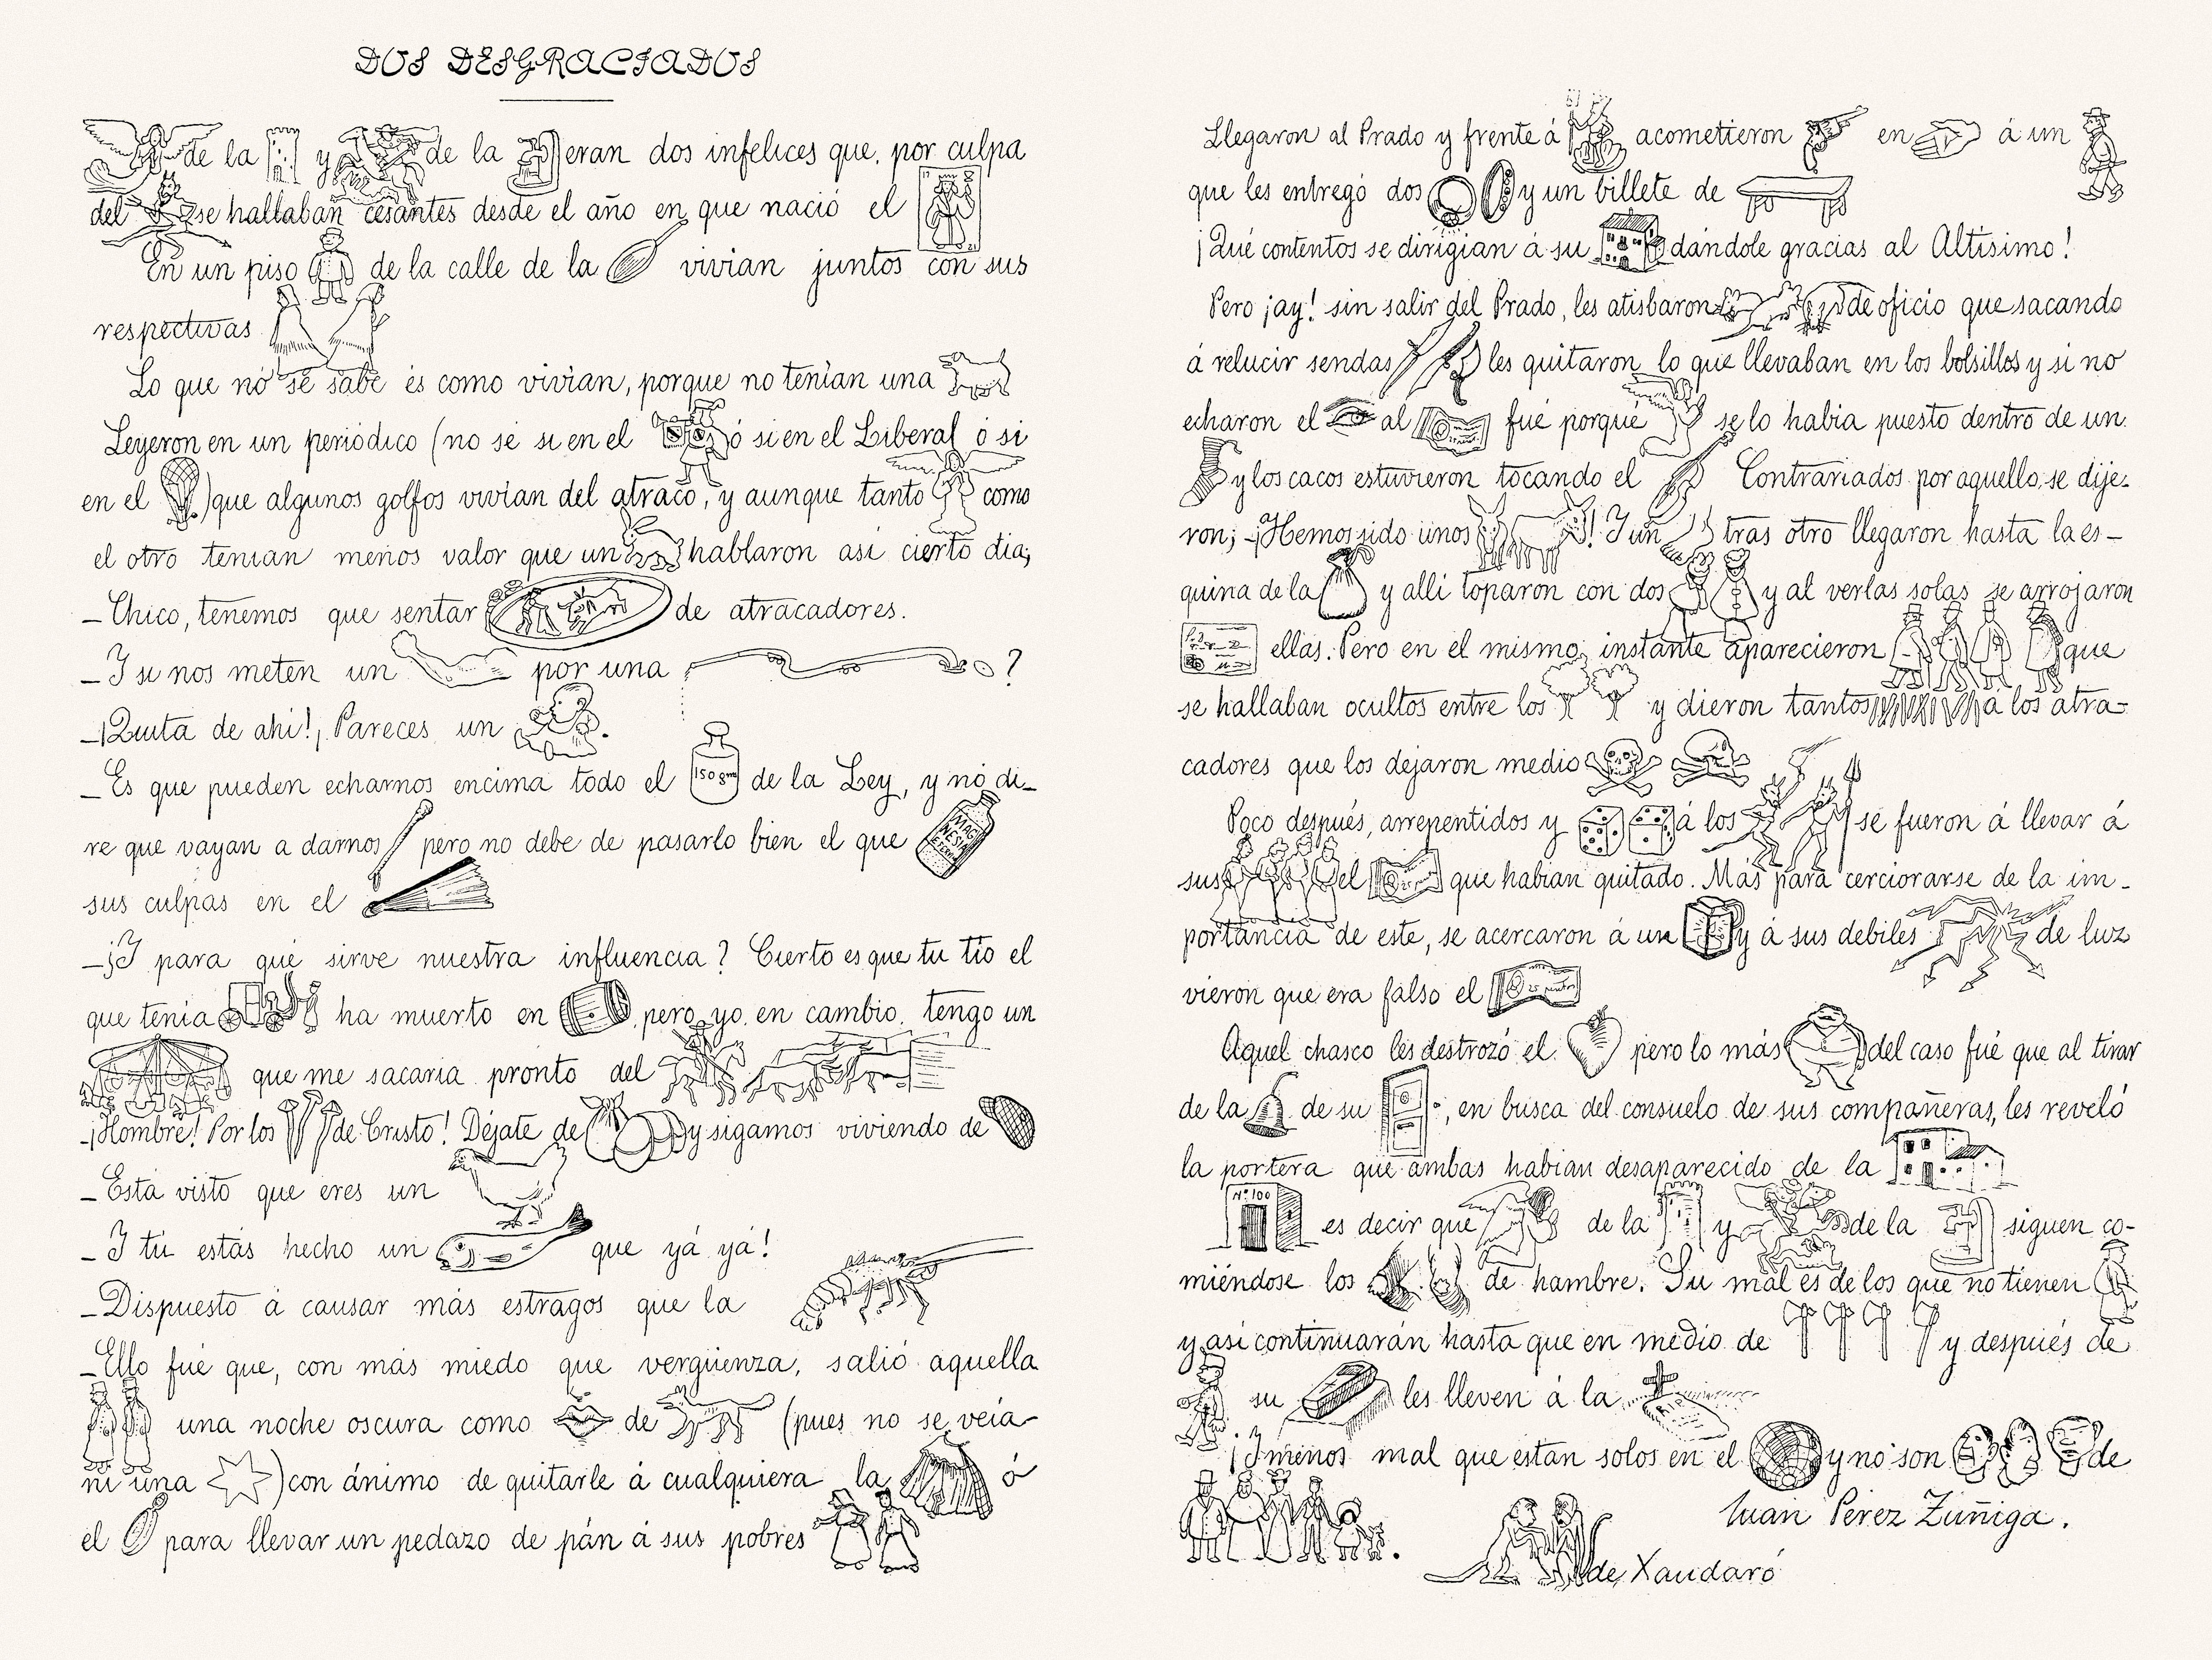 DOS DESGRACIADOS
de la y de la eran dos infelices que, por culpa
del se hallaban cesantes desde el año en que nació el
En un piso de la calle de la vivian juntos con sus
respectivas
Lo que no se sabe es como vivian, porque no tenian una
Leyeron en un periódico (no sé si en el ó si en el Liberal ó si
en el ) que algunos golfos vivian del atraco, y aunque tanto como
el otro tenian menos valor que un hablaron asi cierto dia;
—Chico, tenemos que sentar de atracadores.
—Y si nos meten un por una ?
—¡Quita de ahi!, Pareces un .
—Es que pueden echarnos encima todo el 150 gm de la Ley, y no di—
re que vayan a darnos pero no debe de pasarlo bien el que MAGNESIA
sus culpas en el
—¿Y para qué sirve nuestra influencia? Cierto es que tu tio el
que tenia ha muerto en , pero yo, en cambio, tengo un
que me sacaria pronto del
—¡Hombre! Por los de Cristo! Déjate de y sigamos viviendo de
—Está visto que eres un
—Y tu estás hecho un que yá yá!
—Dispuesto á causar más estragos que la
—Ello fue que, con más miedo que vergüenza, salió aquella
una noche oscura como de (pues no se veia
ni una ) con ánimo de quitarle á cualquiera la ó
el para llevar un pedazo de pán á sus pobres
Llegaron al Prado y frente á acometieron en á un
que les entregó dos y un billete de
¡Qué contentos se dirigian á su dándole gracias al Altisimo!
Pero ¡ay! sin salir del Prado, les atisbaron de oficio que sacando
á relucir sendas les quitaron lo que llevaban en los bolsillos y si no
echaron el al fué porqué se lo habia puesto dentro de un
y los cacos estuvieron tocando el Contrariados por aquello, se dije-
ron; —¡Hemos sido unos ! Y un tras otro llegaron hasta la es—
quina de la y alli toparon con dos y al verlas solas se arrojaron
ellas. Pero en el mismo instante aparecieron que
se hallaban ocultos entre los y dieron tantos á los atra-
cadores que los dejaron medio
Poco después, arrepentidos y á los se fueron á llevar á
sus el que habian quitado. Más para cerciorarse de la im-
portancia de este, se acercaron á un y á sus debiles de luz
vieron que era falso el
Aquel chasco les destrozó el pero lo más del caso fué que al tirar
de la de su , en busca del consuelo de sus compañeras, les reveló
la portera que ambas habian desaparecido de la
Nº 100 es decir que de la y de la siguen co-
miéndose los de hambre. Su mal es de los que no tienen
y asi continuarán hasta que en medio de y después de
su les lleven á la
¡Y menos mal que estan solos en el y no son de
.
Juan Pérez Zúñiga.
de Xaudaró